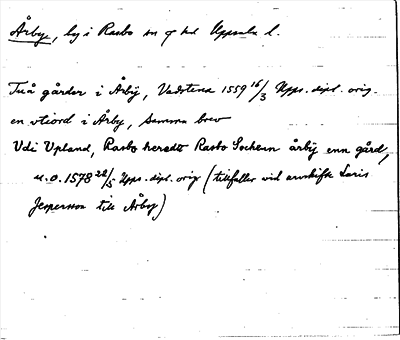 Årby, by i Rasbo sn o hd Uppsala l.
Två gårdar i Årbÿ, Vadstena 1559 16/3 Upps. dipl. orig.
en utiord i Årby, samma brev
Vdi Vpland, Rasbo heredt Rasbo Sochenn årbÿ enn gård,
u.o. 1578 22/5 Upps. dipl. orig (tillfaller vid arvskifte Laris
Jespersson till Årby)